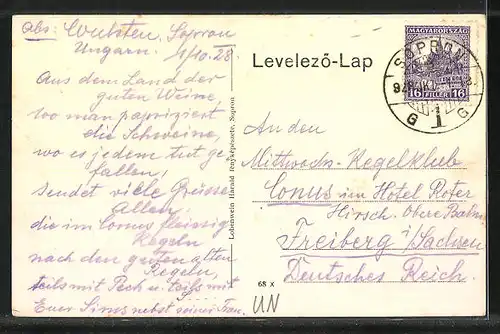 Abs: Wubsten, Sopron
Ungarn. 1/10.28.
Aus dem Land der
guten Weine,
wo man papriziert
die Schweine,
wo es jedem tut ge-
fallen,
sendet viele Grüsse
Allen
die im Conus fleissig
Kegeln
nach den guten alten
Regeln,
teils mit Pech u. teils mit
Euer Sims nebst seiner Frau.
Lobenwein Harald fényképészete, Sopron
Levelező-Lap
MAGYARORSZÁG
16 FILLÉR 16
SOPRON
1
G G
An den
Mittwoch-Kegelklub
Conus im Hotel Roter
Hirsch. Obere Bahn
Freiberg i/Sachsen
Deutsches Reich.
68 x
UN